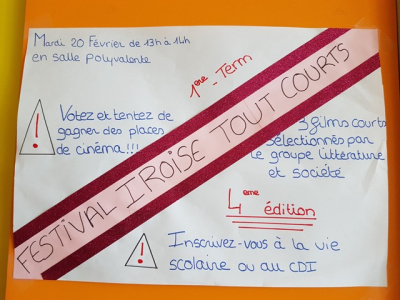 Mardi 20 Février de 13h à 14h
en salle Polyvalente
1ère - Term
Votez et tentez de
gagner des places
de cinéma!!!
!
FESTIVAL IROISE TOUT COURTS
3 films courts
sélectionnés par
le groupe littérature
et société
4ème édition
!
Inscrivez-vous à la vie
scolaire ou au CDI